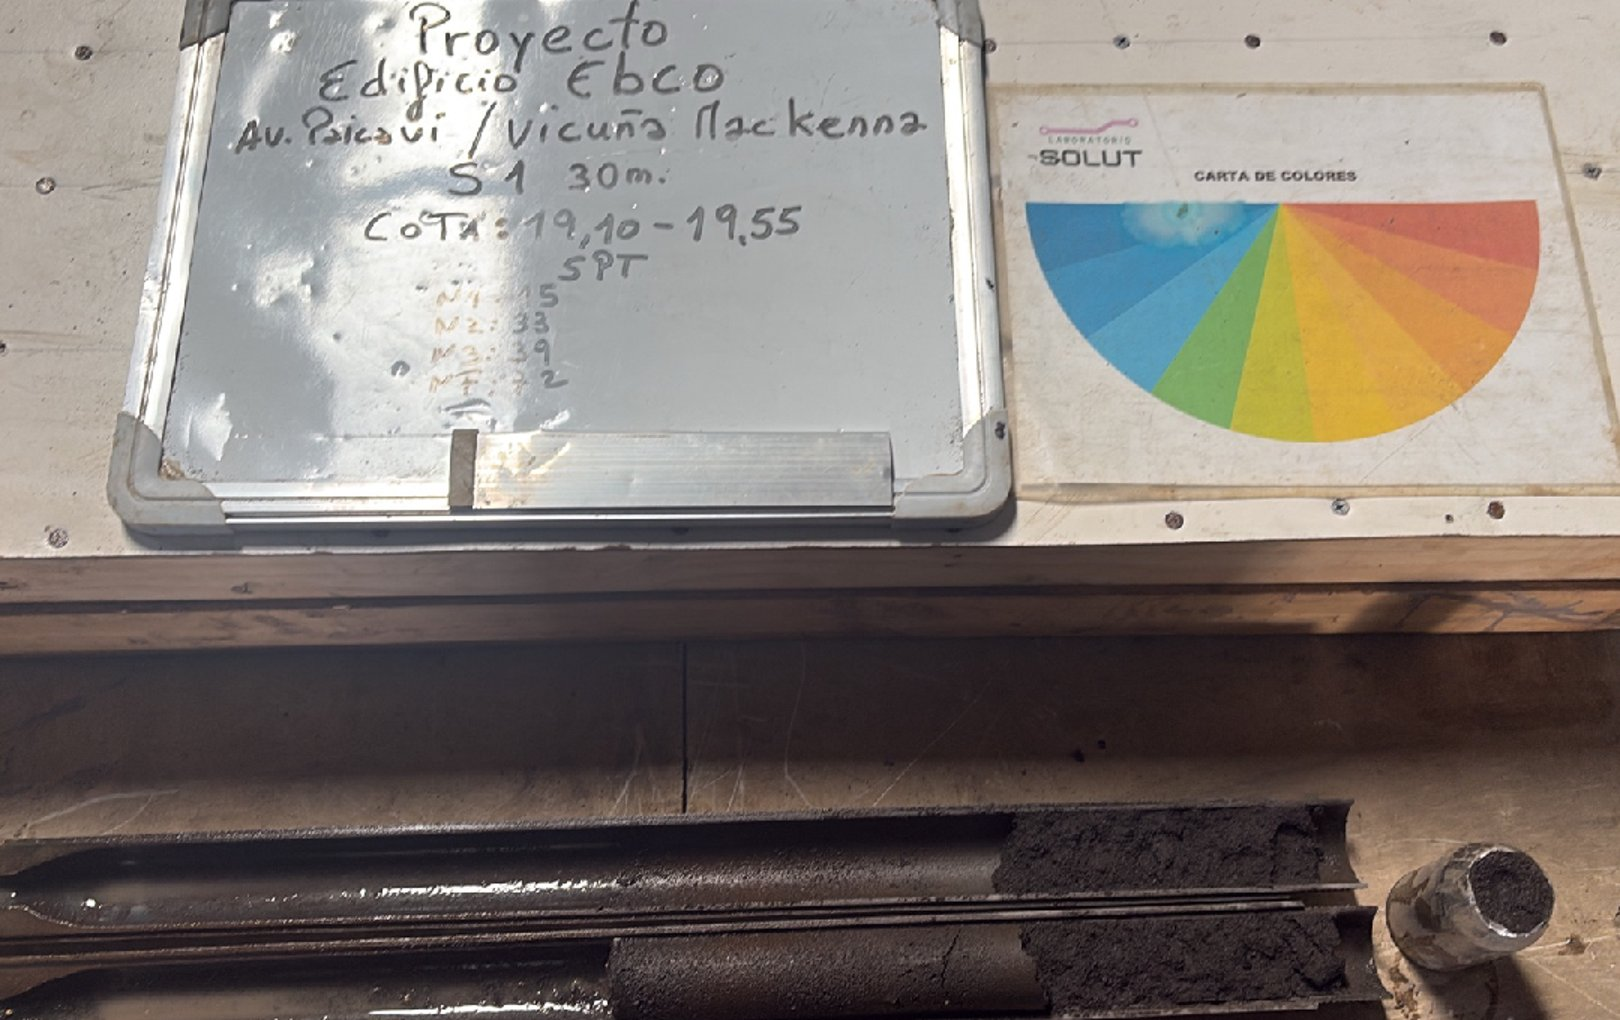 Proyecto
Edificio Ebco
Av. Paicavi / Vicuña Mackenna
S1 30m.
COTA: 19,10 - 19,55
SPT
N2: 33
LABORATORIO
SOLUT
CARTA DE COLORES